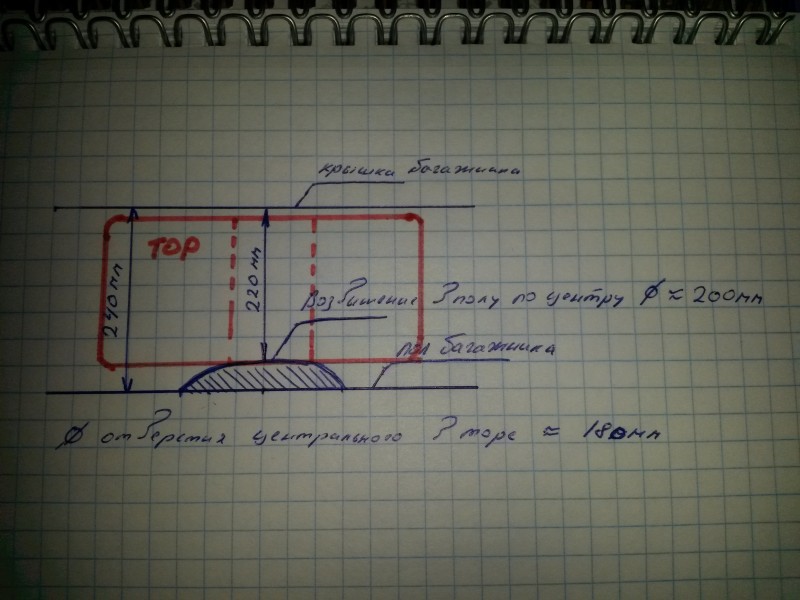 крышка багажника
ТОР
240мм
220мм
Возвишение в полу по центру ⌀ ≈ 200мм
пол багажника
⌀ отверстия центрального в торе ≈ 180мм